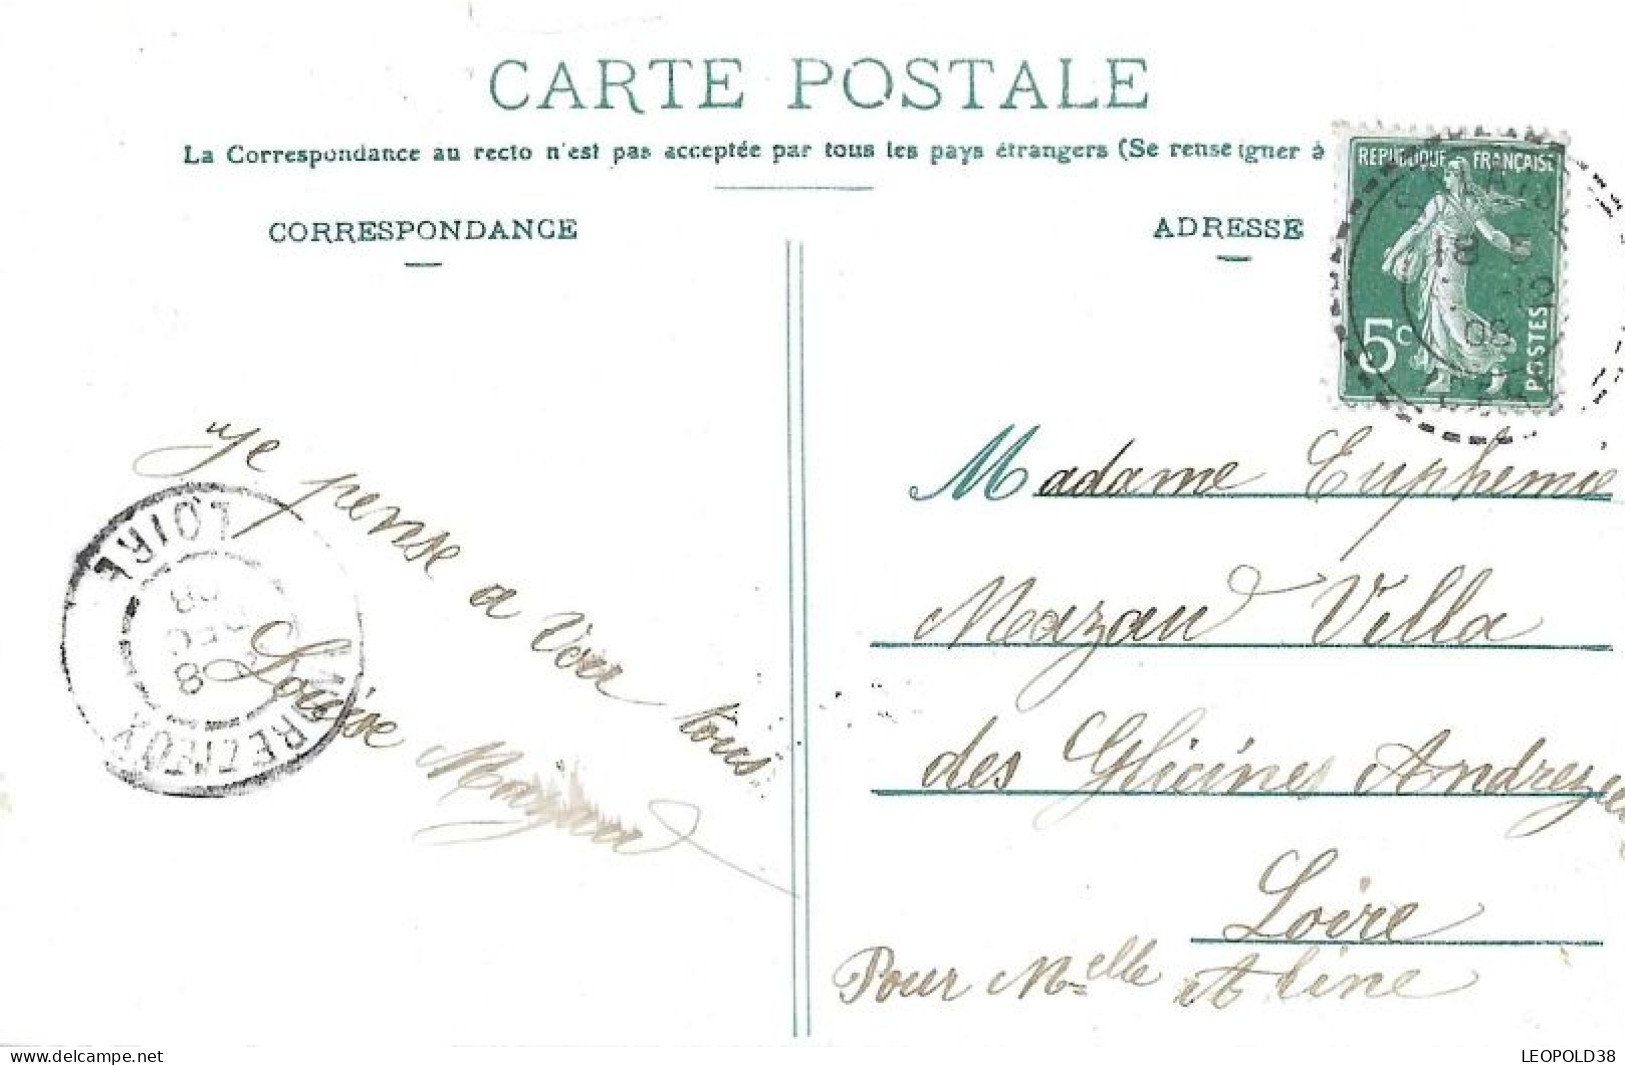 CARTE POSTALE
La Correspondance au recto n'est pas acceptée par tous les pays étrangers (Se renseigner à
CORRESPONDANCE
ADRESSE
REPUBLIQUE FRANÇAISE
5c
POSTES
18
5
08
Je pense a Vous tous
Louise Mazaud
LOIRE
8
DEC
08
ANDREZIEUX
Madame Euphemie
Mazaud Villa
des Glicines Andrezieu
Loire
Pour Melle Aline
www.delcampe.net
LEOPOLD38